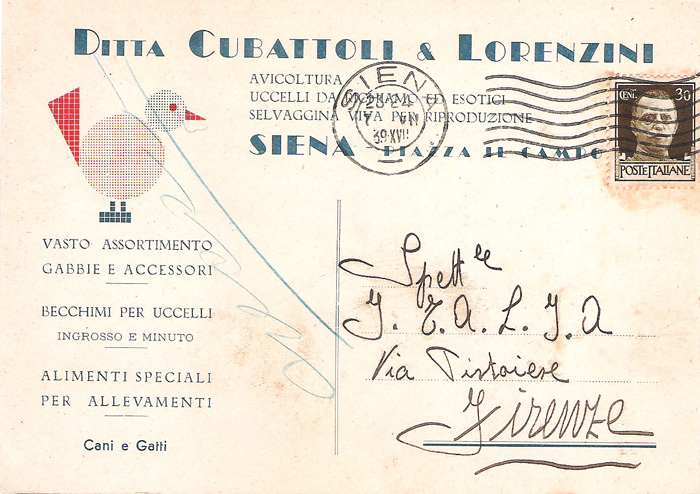 DITTA CUBATTOLI & LORENZINI
AVICOLTURA
UCCELLI DA RICHIAMO ED ESOTICI
SELVAGGINA VIVA PER RIPRODUZIONE
SIENA PIAZZA IL CAMPO
SIENA
39XVII
CENT. 30
POSTE ITALIANE
VASTO ASSORTIMENTO
GABBIE E ACCESSORI
BECCHIMI PER UCCELLI
INGROSSO E MINUTO
ALIMENTI SPECIALI
PER ALLEVAMENTI
Cani e Gatti
Spett.le
I.T.A.L.I.A
Via Pistoiese
Firenze